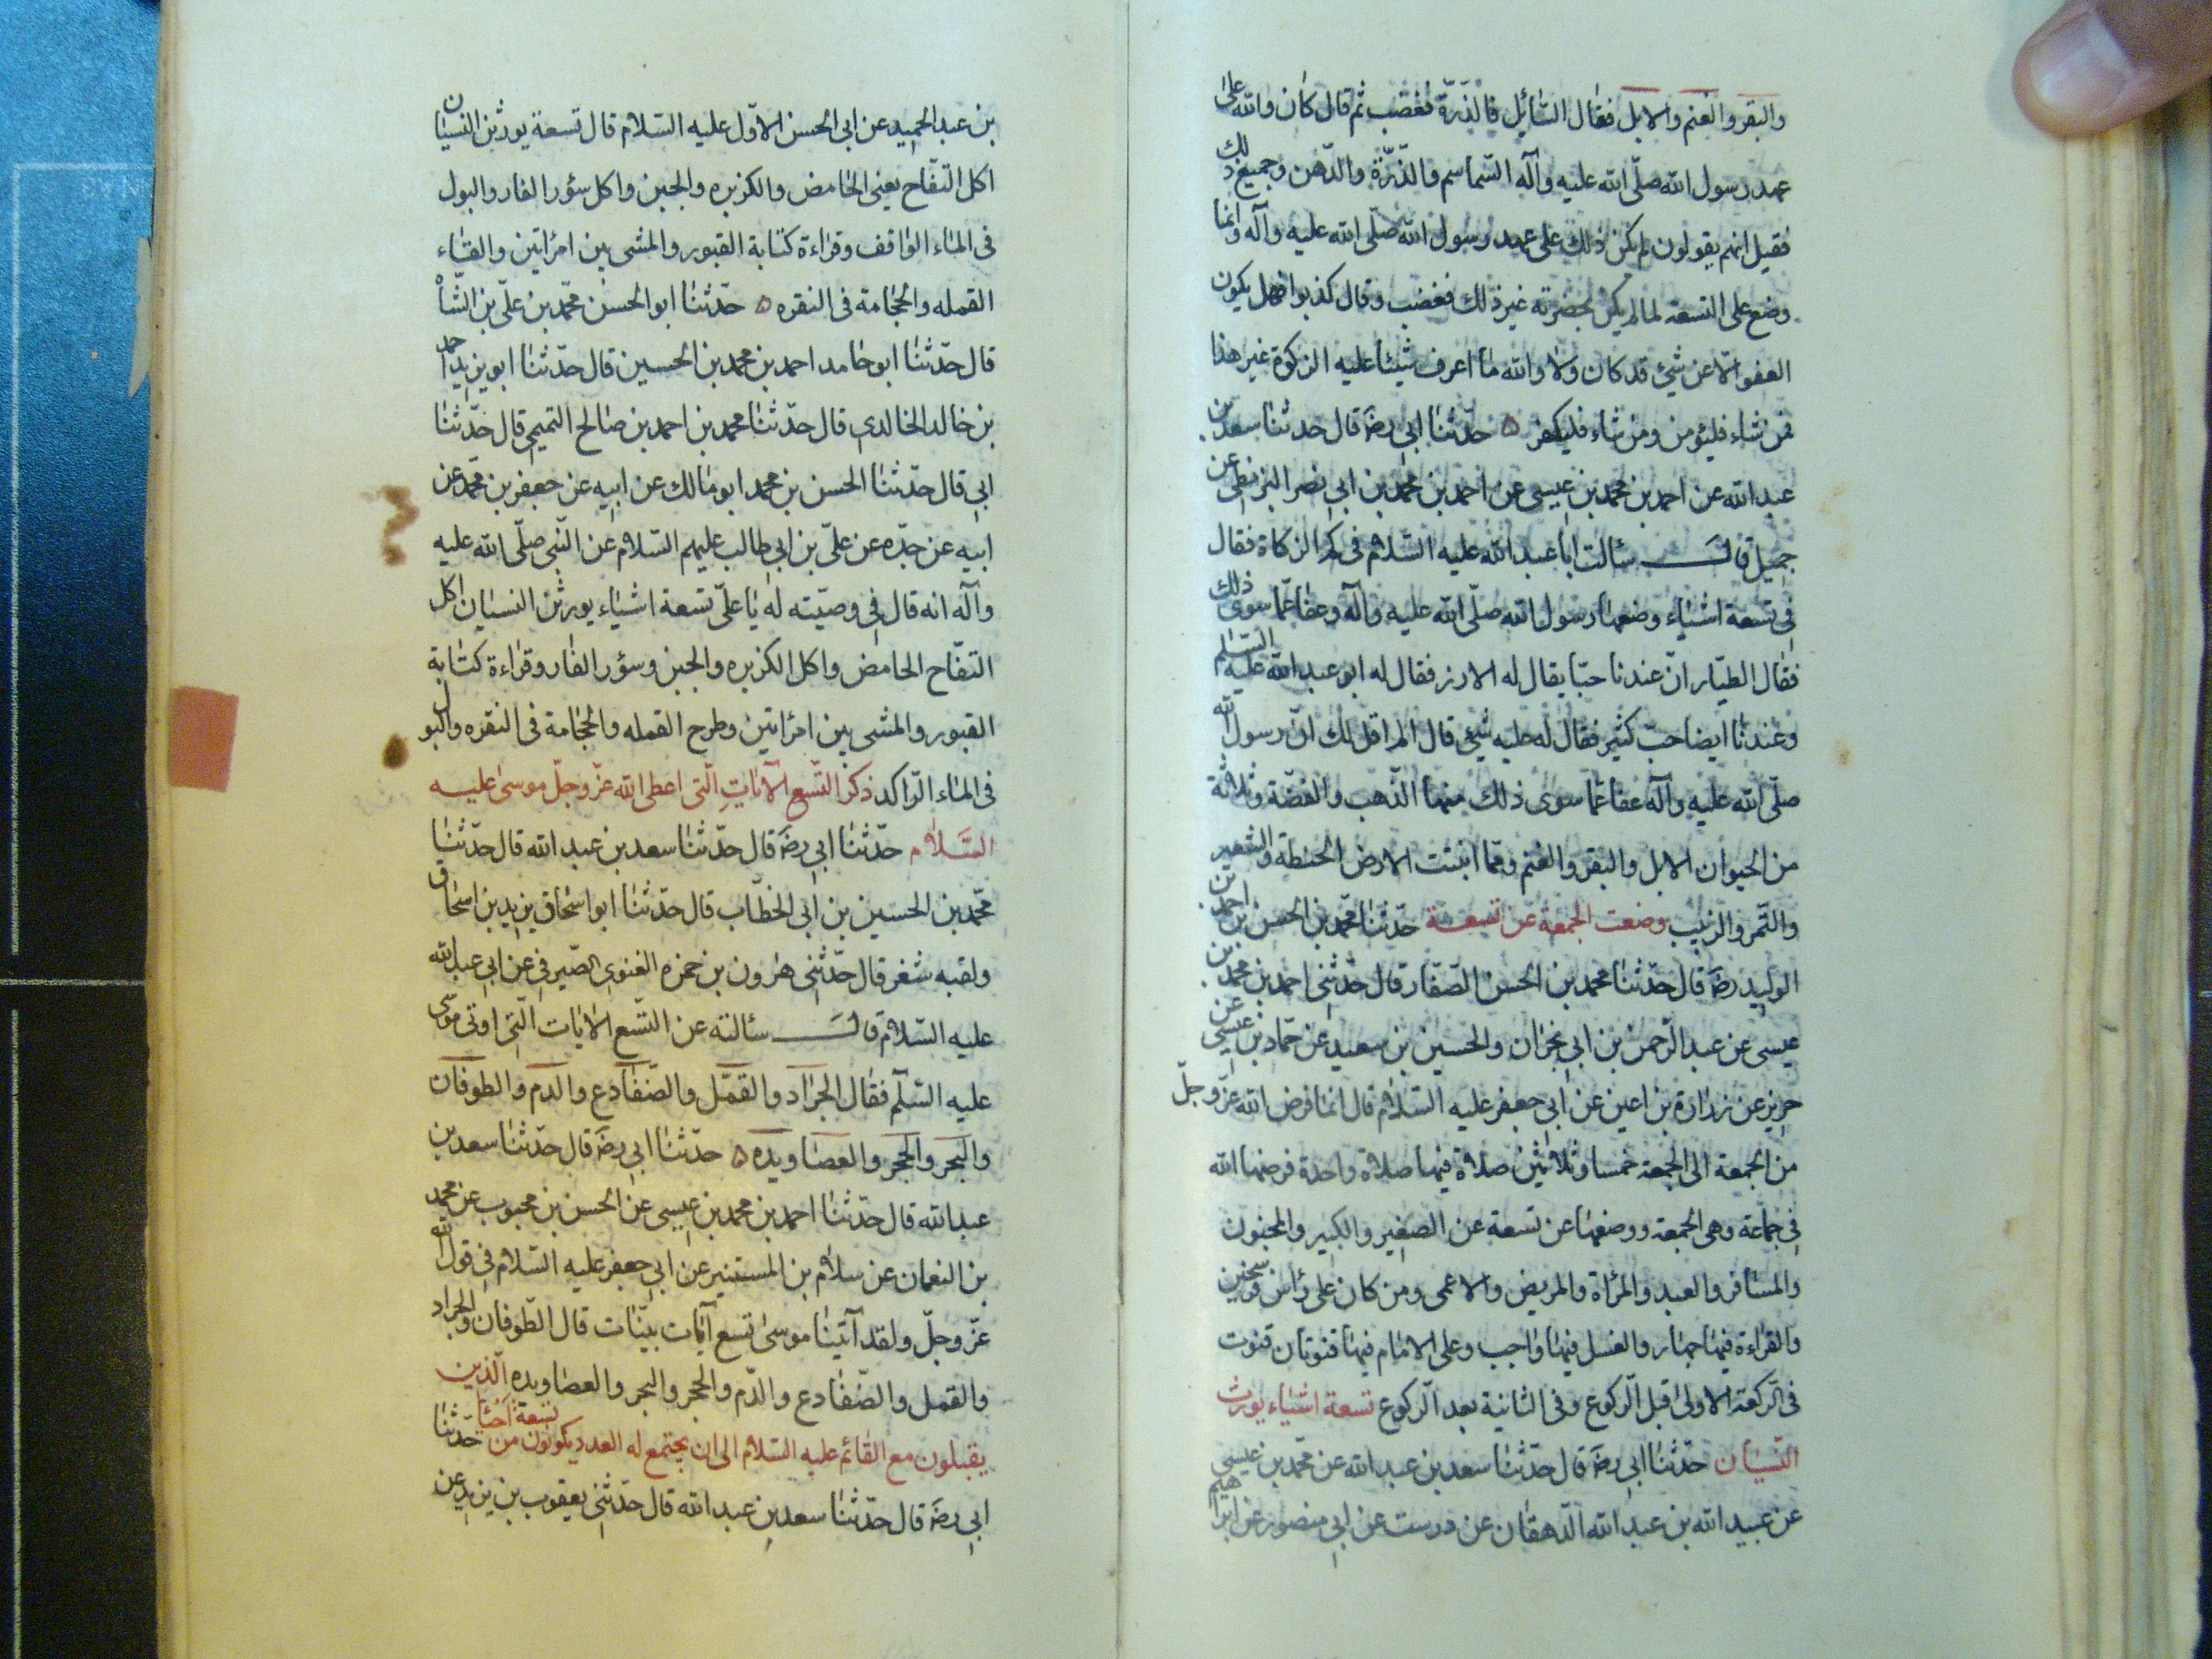 والبقر والغنم والابل فقال السائل فالذرة فغضب ثم قال كان والله على
عهد رسول الله صلى الله عليه وآله السماسم والذرة والدهن وجميع ذلك
فقيل انهم يقولون لم يكن ذلك على عهد رسول الله صلى الله عليه وآله وانما
وضع على التسعة لما لم يكن بحضرته غير ذلك فغضب وقال كذبوا فهل يكون
العفو الا عن شئ قد كان ولا والله ما اعرف شيئا عليه الزكوة غير هذا
فمن شاء فليؤمن ومن شاء فليكفر حدثنا ابي رض قال حدثنا سعد بن
عبد الله عن احمد بن محمد بن عيسى عن احمد بن محمد بن ابي نصر البزنطي عن
جميل قال سألت ابا عبد الله عليه السلام في كم الزكاة فقال
في تسعة اشياء وضعها رسول الله صلى الله عليه وآله وعفا عما سوى ذلك
فقال الطيار ان عندنا حبا يقال له الارز فقال له ابو عبد الله عليه السلم
وعندنا ايضا حب كثير فقال له عليه شئ قال الم اقل لك ان رسول الله
صلى الله عليه وآله عفا عما سوى ذلك منها الذهب والفضة وثلاثة
من الحيوان الابل والبقر والغنم ومما انبتت الارض الحنطة والشعير
والتمر والزبيب وضعت الجمعة عن تسعة حدثنا محمد بن الحسن بن احمد بن
الوليد رض قال حدثنا محمد بن الحسن الصفار قال حدثني احمد بن محمد بن
عيسى عن عبد الرحمن بن ابي نجران والحسين بن سعيد عن حماد بن عيسى عن
حريز عن زرارة بن اعين عن ابي جعفر عليه السلام قال انما فرض الله عز وجل
من الجمعة الى الجمعة خمسا وثلاثين صلاة فيها صلاة واحدة فرضها الله
في جماعة وهي الجمعة ووضعها عن تسعة عن الصغير والكبير والمجنون
والمسافر والعبد والمرأة والمريض والاعمى ومن كان على رأس فرسخين
والقراءة فيها جهار والغسل فيها واجب وعلى الامام فيها قنوتان قنوت
في الركعة الاولى قبل الركوع وفي الثانية بعد الركوع تسعة اشياء يورث
النسيان حدثنا ابي رض قال حدثنا سعد بن عبد الله عن محمد بن عيسى
عن عبيد الله بن عبد الله الدهقان عن درست عن ابي منصور عن ابراهيم
بن عبد الحميد عن ابي الحسن الاول عليه السلام قال تسعة يورثن النسيان
اكل التفاح يعني الحامض والكزبره والجبن واكل سؤر الفار والبول
في الماء الواقف وقراءة كتابة القبور والمشي بين امرأتين والقاء
القمله والحجامة في النقره حدثنا ابو الحسن محمد بن علي بن الشاه
قال حدثنا ابو حامد احمد بن محمد بن الحسين قال حدثنا ابو يزيد احمد
بن خالد الخالدي قال حدثنا محمد بن احمد بن صالح التميمي قال حدثنا
ابي قال حدثنا الحسن بن محمد ابو مالك عن ابيه عن جعفر بن محمد عن
ابيه عن جده عن علي بن ابي طالب عليهم السلام عن النبي صلى الله عليه
وآله انه قال في وصيته له يا علي تسعة اشياء يورثن النسيان اكل
التفاح الحامض واكل الكزبره والجبن وسؤر الفار وقراءة كتابة
القبور والمشي بين امرأتين وطرح القمله والحجامة في النقره والبول
في الماء الراكد ذكر التسع الآيات التي اعطى الله عز وجل موسى عليه
السلام حدثنا ابي رض قال حدثنا سعد بن عبد الله قال حدثنا
محمد بن الحسين بن ابي الخطاب قال حدثنا ابو اسحاق يزيد بن اسحاق
ولقبه شغر قال حدثني هرون بن حمزه الغنوي الصيرفي عن ابي عبد الله
عليه السلام قال سألته عن التسع الايات التي اوتي موسى
عليه السلم فقال الجراد والقمل والضفادع والدم والطوفان
والبحر والحجر والعصا ويده حدثنا ابي رض قال حدثنا سعد بن
عبد الله قال حدثنا احمد بن محمد بن عيسى عن الحسن بن محبوب عن محمد
بن النعمان عن سلام بن المستنير عن ابي جعفر عليه السلام في قول الله
عز وجل ولقد آتينا موسى تسع آيات بينات قال الطوفان والجراد
والقمل والضفادع والدم والحجر والبحر والعصا ويده الذين
يقبلون مع القائم عليه السلام الى ان يجتمع له العدد يكونون من تسعة احياء حدثنا
ابي رض قال حدثنا سعد بن عبد الله قال حدثني يعقوب بن يزيد عن